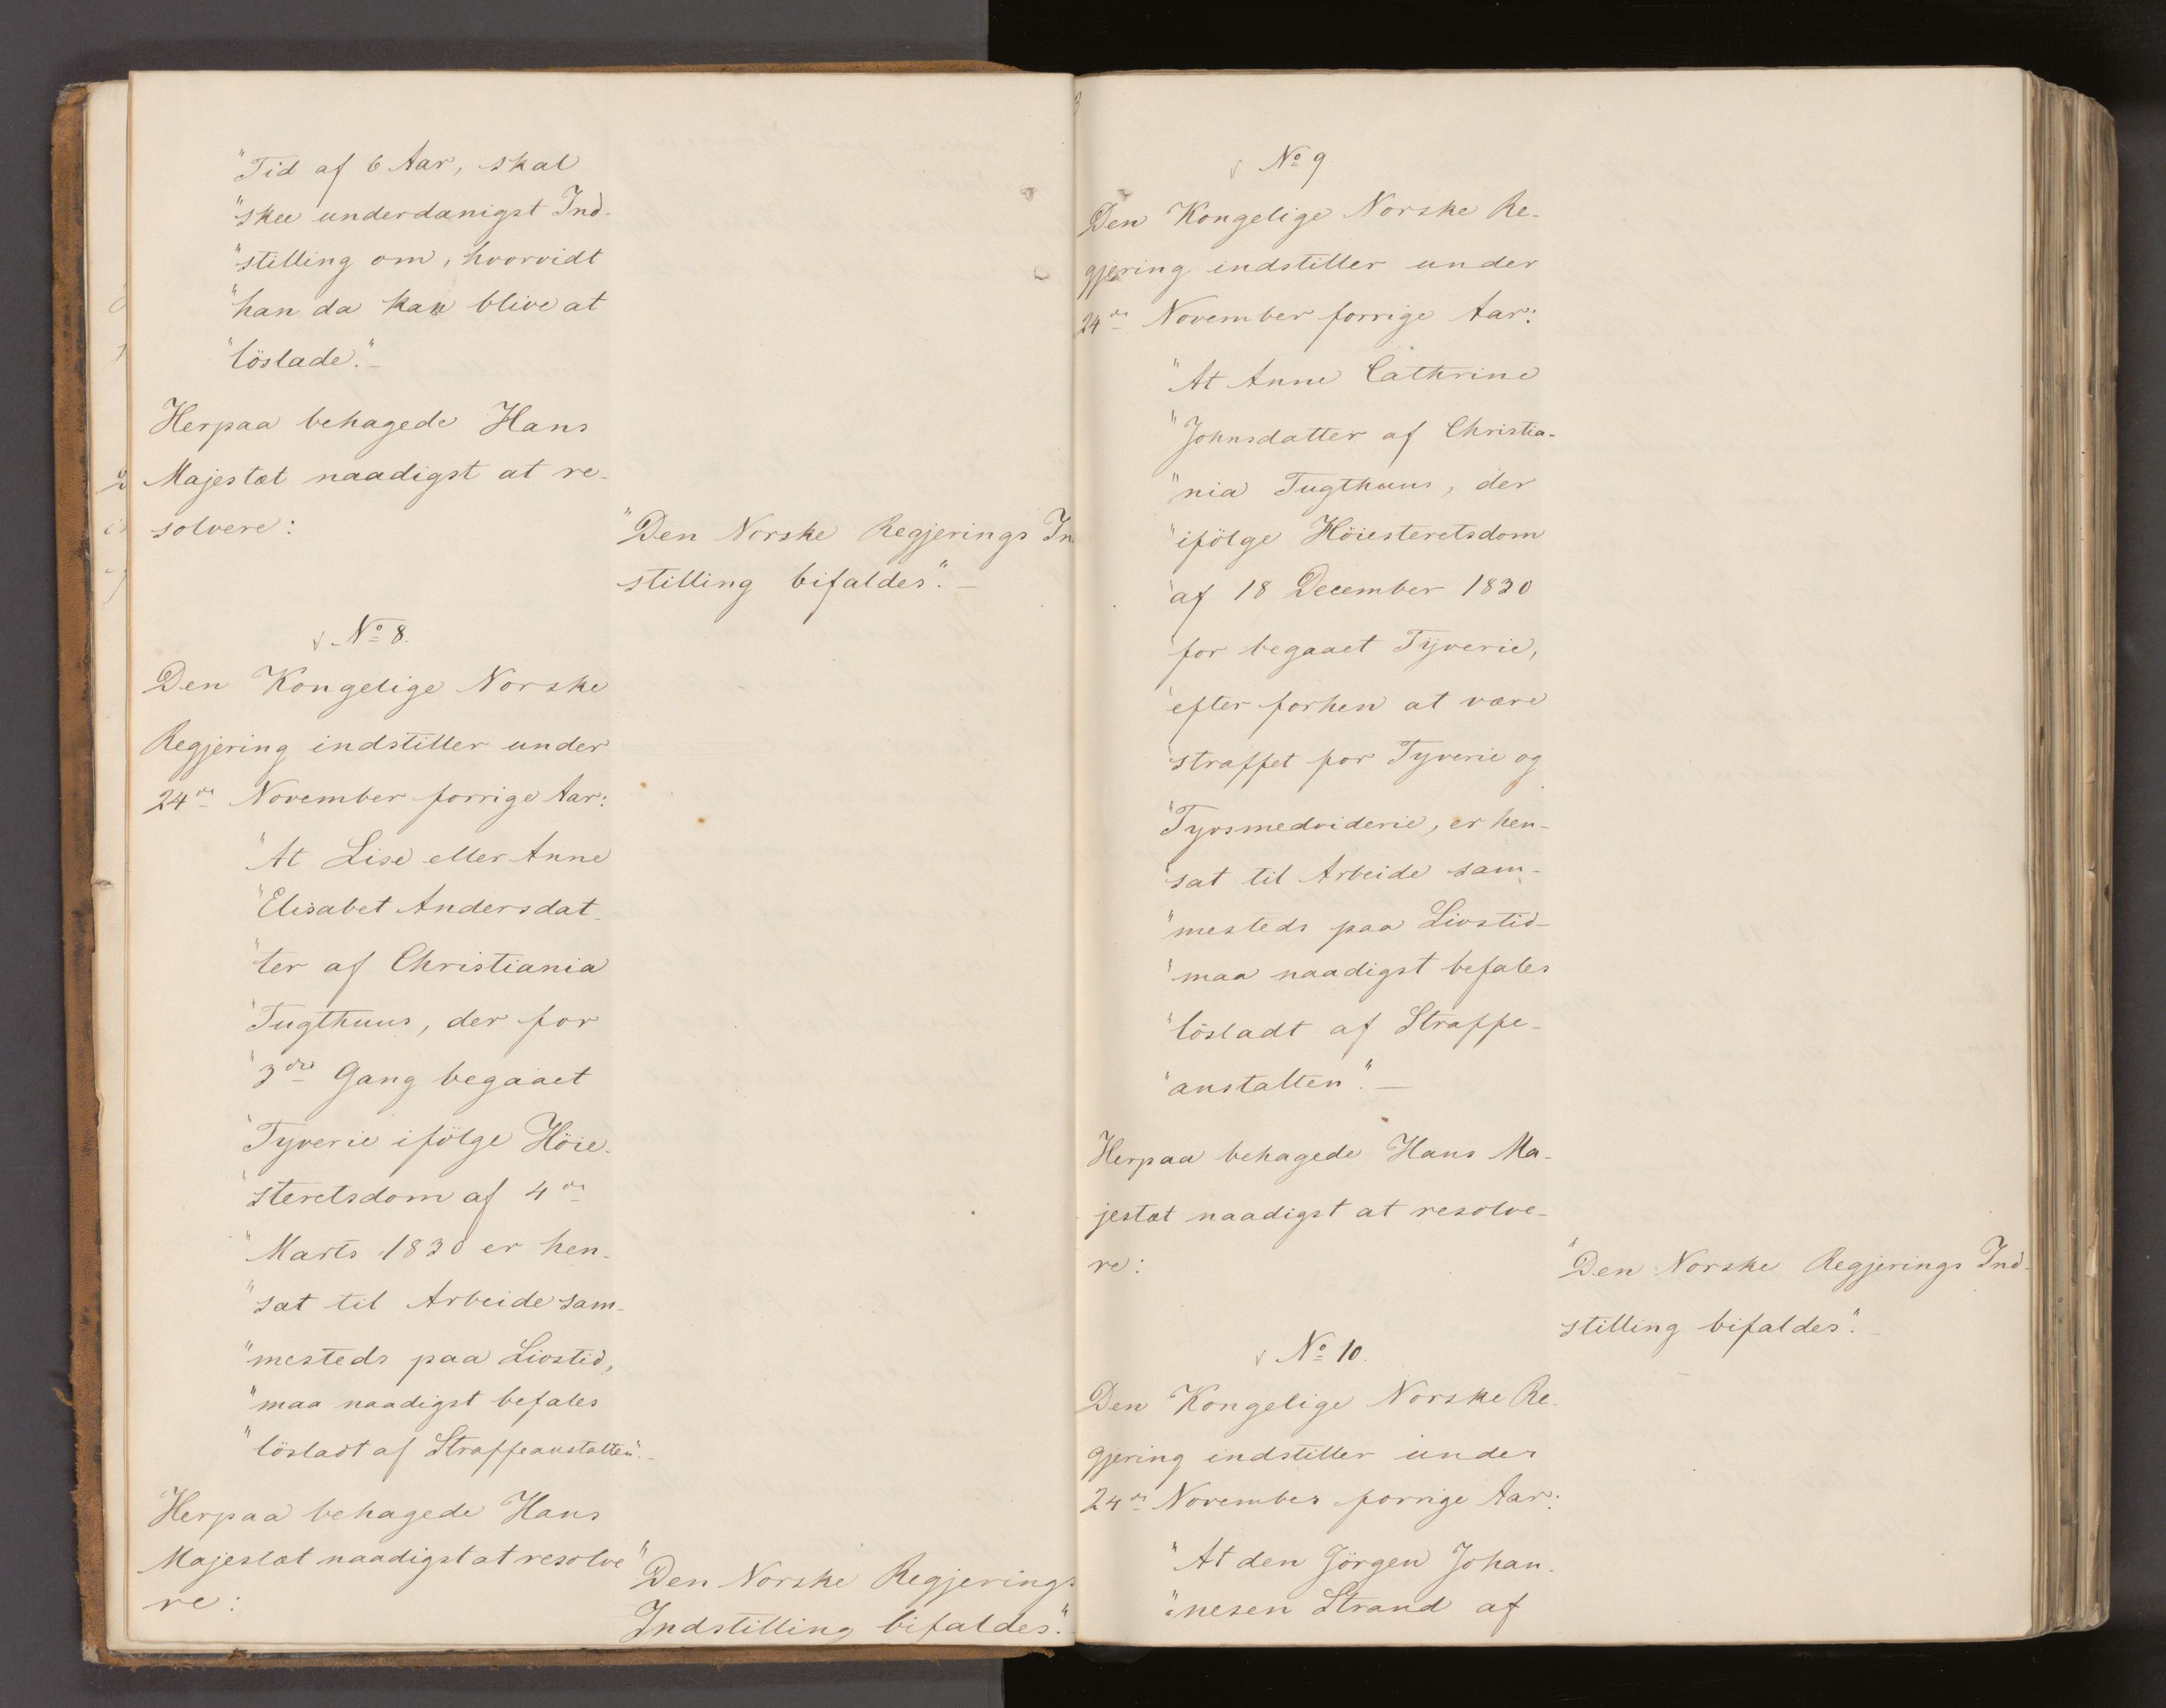 "Tid af 6 Aar, skal
"skee underdanigst Ind-
"stilling om, hvorvidt
"han da kan blive at
"löslade."-
Herpaa behagede Hans
Majestæt naadigst at re-
solvere:
"Den Norske Regjerings In
stilling bifaldes".-
No 8.
Den Kongelige Norske
Regjering indstiller under
24de November forrige Aar:
"At Lise eller Anne
"Elisabet Andersdat-
"ter af Christiania
"Tugthuus, der for
"3die Gang begaaet
"Tyverie ifölge Höie-
"steretsdom af 4de
"Marts 1830 er hen-
"sat til Arbeide sam-
"mesteds paa Livstid,
"maa naadigst befales
"lösladt af Straffeanstalten".-
Herpaa behagede Hans
Majestæt naadigst at resolve
re:
"Den Norske Regjerings
Indstilling bifaldes."
No 9.
Den Kongelige Norske Re-
gjering indstiller under
24de November forrige Aar:
"At Anne Cathrine
"Johnsdatter af Christia-
"nia Tugthuus, der
"ifölge Höiesteretsdom
"af 18 December 1830
"for begaaet Tyverie,
"efter forhen at være
"straffet for Tyverie og
"Tyvsmedviderie, er hen-
"sat til Arbeide sam-
"mesteds paa Livstid-
"maa naadigst befales
"lösladt af Straffe-
"anstalten".-
Herpaa behagede Hans Ma-
jestæt naadigst at resolve-
re:
"Den Norske Regjerings Ind-
stilling bifaldes".-
No 10.
Den Kongelige Norske Re-
gjering indstiller under
24de November forrige Aar:
"At den Jörgen Johan-
"nesen Strand af